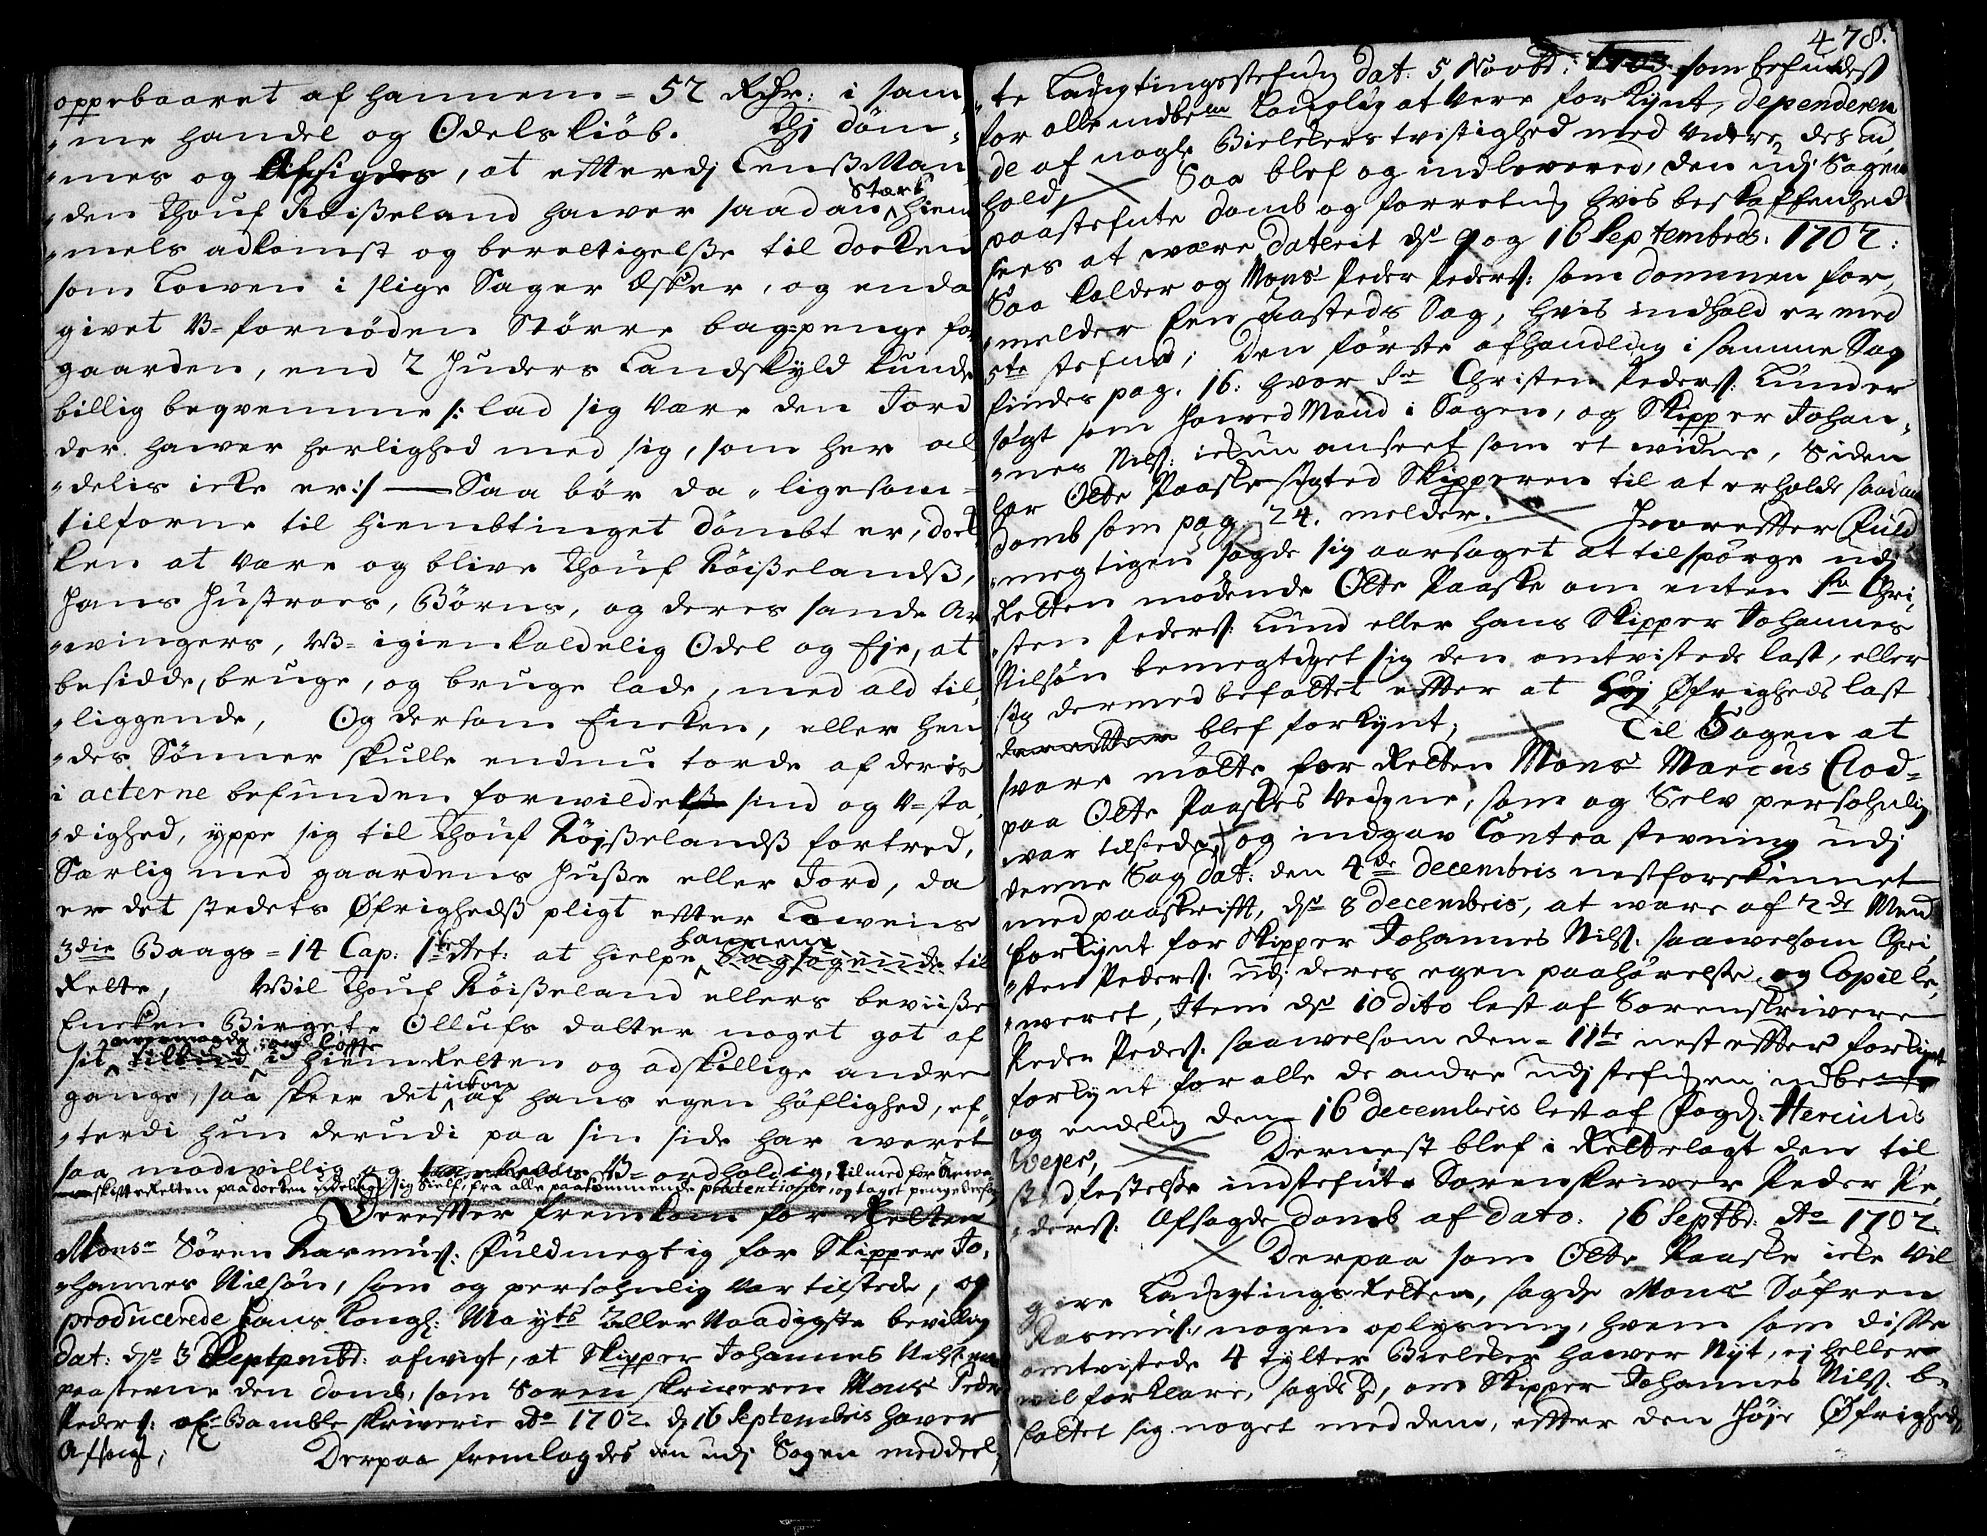 oppebaaret af hannem = 52 Rdr: i sam,
"me handel og Odelskiöb. Thj döm,
"mes og Afsigdes, at efterdj LensMan,
"den Thouf Röißeland hawer saadan Stærk hiem
"mels adkomst og berettigelße til doeken
som Lowen i slige Sager Æsker, og enda
givet V-fornöden Större bag-penge for
gaarden, end 2 Huders Landskyld kunde
billig beqvemme /: lad sig være den Jord
der hawer herlighed med sig, som her al
"delis icke er:/ — Saa bör da, ligesom-
tilforne til hiembtinget dömbt er, doe
ken at være og blive Thouf Röißelandß,
Hans Hustroes, Börns, og deres sande Ar
"wingers, V-igienkaldelig Odel og Eje, at
besidde, bruge, og bruge lade, med ald til
"liggende, Og dersom Encken, eller hen
"des Sönner skulle endnu torde af deris
i acterne befunden forwilde sind og V-sta
"dighed, yppe sig til Thouf Röjßelandß fortred,
Særlig med gaardens Huße eller Jord, da
er det stedets Öfrighedß pligt efter Lowens
3die Baags = 14 Cap: 1te Art: at hielpe hannem Sagsögende til
Rette, Wil Thouf Röißeland ellers beviiße
Encken Birgete Ollufs datter noget got af
sit tilbud i hiemRetten og adskillige andre
gange, saa skeer det ickon af hans egen höflighed, ef,
"terdi hun derudi paa sin side har weret
saa modwillig og V-ordholdig, tilmed for
skifteRetten paa doeken ydelig sig Self, fra alle paakommende prætentioner, og taget penge derfor
Derefter fremkom for Retten
Monsr Sören Rasmus: Fuldmegtig for Skipper Jo,
"hannes Nilsön, som og persohnlig var tilstede, og
producerede Hans Kongl: Mayts aller Naadigste bevilling
dat: ds 3 Septembr: afwigt, at Skipper Johannes Nils: maa
paastevne den domb, som Sorenskriveren Mons Peder
Peders: af Bamble skriverie Ao 1702 d 16 Septembris haver
Afsagt; Derpaa fremlagdes den udj Sagen meddeel,
478.
"te Laugtingsstefning dat: 5 Novbr: 1703 som befindes
for alle indbem Louglig at være forkynt, dependeren
de af nogle Bielckers tvistighed med videre des ind
hold, Saa blef og indlevered, den udj Sagen
paastefnte domb og forretning hvis beskaffenhed
sees at være daterit ds 9 og 16 Septembrs: 1702:
Saa kalder og Mons Peder Peders: som dommen for,
"melder Een Aasteds Sag, hvis indhold er med
5te stefnd; Den förste afhandling i samme Sag
findes pag. 16: hvor Sr Christen Peders: Lunder
sögt som Howed Mand i Sagen, og Skipper Johan,
"nes Nils: ickun anseet som et widne, Siden
lar Olte Paaske sigted Skipperen til at erholde saadan
domb som pag. 24. melder. Hvorefter Fuld
"megtigen sagde sig aarsaget at tilspörge udj
Retten mödende Olte Paaske om enten Sr Chri,
"sten Peders: Lund eller hans Skipper Johannes
Nilsön bemegtiget sig den omtvistede last, eller
sig dermed befattet efter at Höj Öfrigheds last
blef forkynt; Til Sagen at
svare mötte for Retten Mons Marcus Clod=
paa Olte Paaskes vegne, som og Selv persohnlig
war tilstede, og indgav Contra stevning udj
denne Sag dat: den 4de decembris nestforskinnet
med paaskrifft, ds 8 decembris, at være af 2de Mend
forkynt for Skipper Johannes Nils: saawelsom Chri,
"sten Peders: udj deres egen paahörelse, og Copi le,
"weret, Item ds 10 dito lest af Sorenskriveren
Peder Peders: saawelsom den = 11te nest efter
forkynt for alle de andre udj stefningen indbem
og endelig den 16 decembris lest af Fogd: Herculis
Wejer, Dernest blef i Rette lagt den til
stadfestelse indstefnte Sorenskriver Peder Pe,
"ders: Afsagde domb af dato. 16 Septbr: Ao 1702.
Derpaa som Olte Paaske icke vil
give LaugtingsRetten, sagde Mons Söfren
Rasmus:, nogen oplysning, hvem som disse
omtvistede 4 tylter Bielcker hawer Nyt, ej heller
vil forklare, sagde , om Skipper Johannes Nils: be
fattet sig noget med dem, efter den Höje Öfrigheds